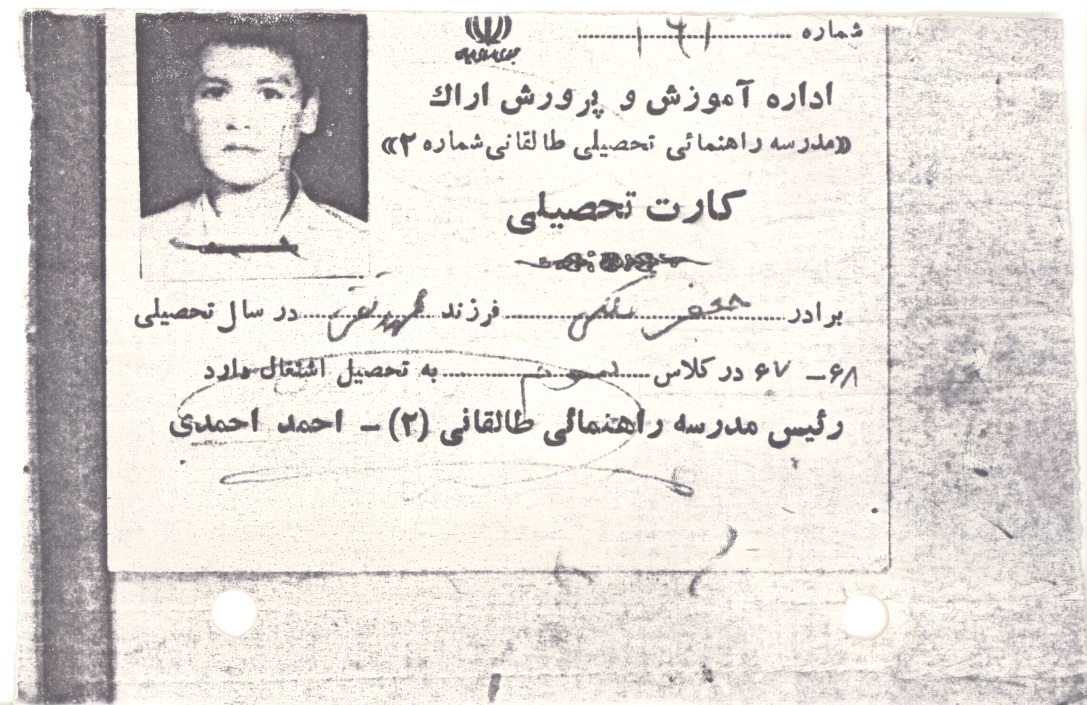 شماره ۱۴۱
جمهوری اسلامی ایران
اداره آموزش و پرورش اراك
«مدرسه راهنمائی تحصیلی طالقانی شماره ۲»
کارت تحصیلی
برادر فرزند در سال تحصیلی
۶۸ – ۶۷ در کلاس به تحصیل اشتغال دارد
رئیس مدرسه راهنمائی طالقانی (۲) – احمد احمدی